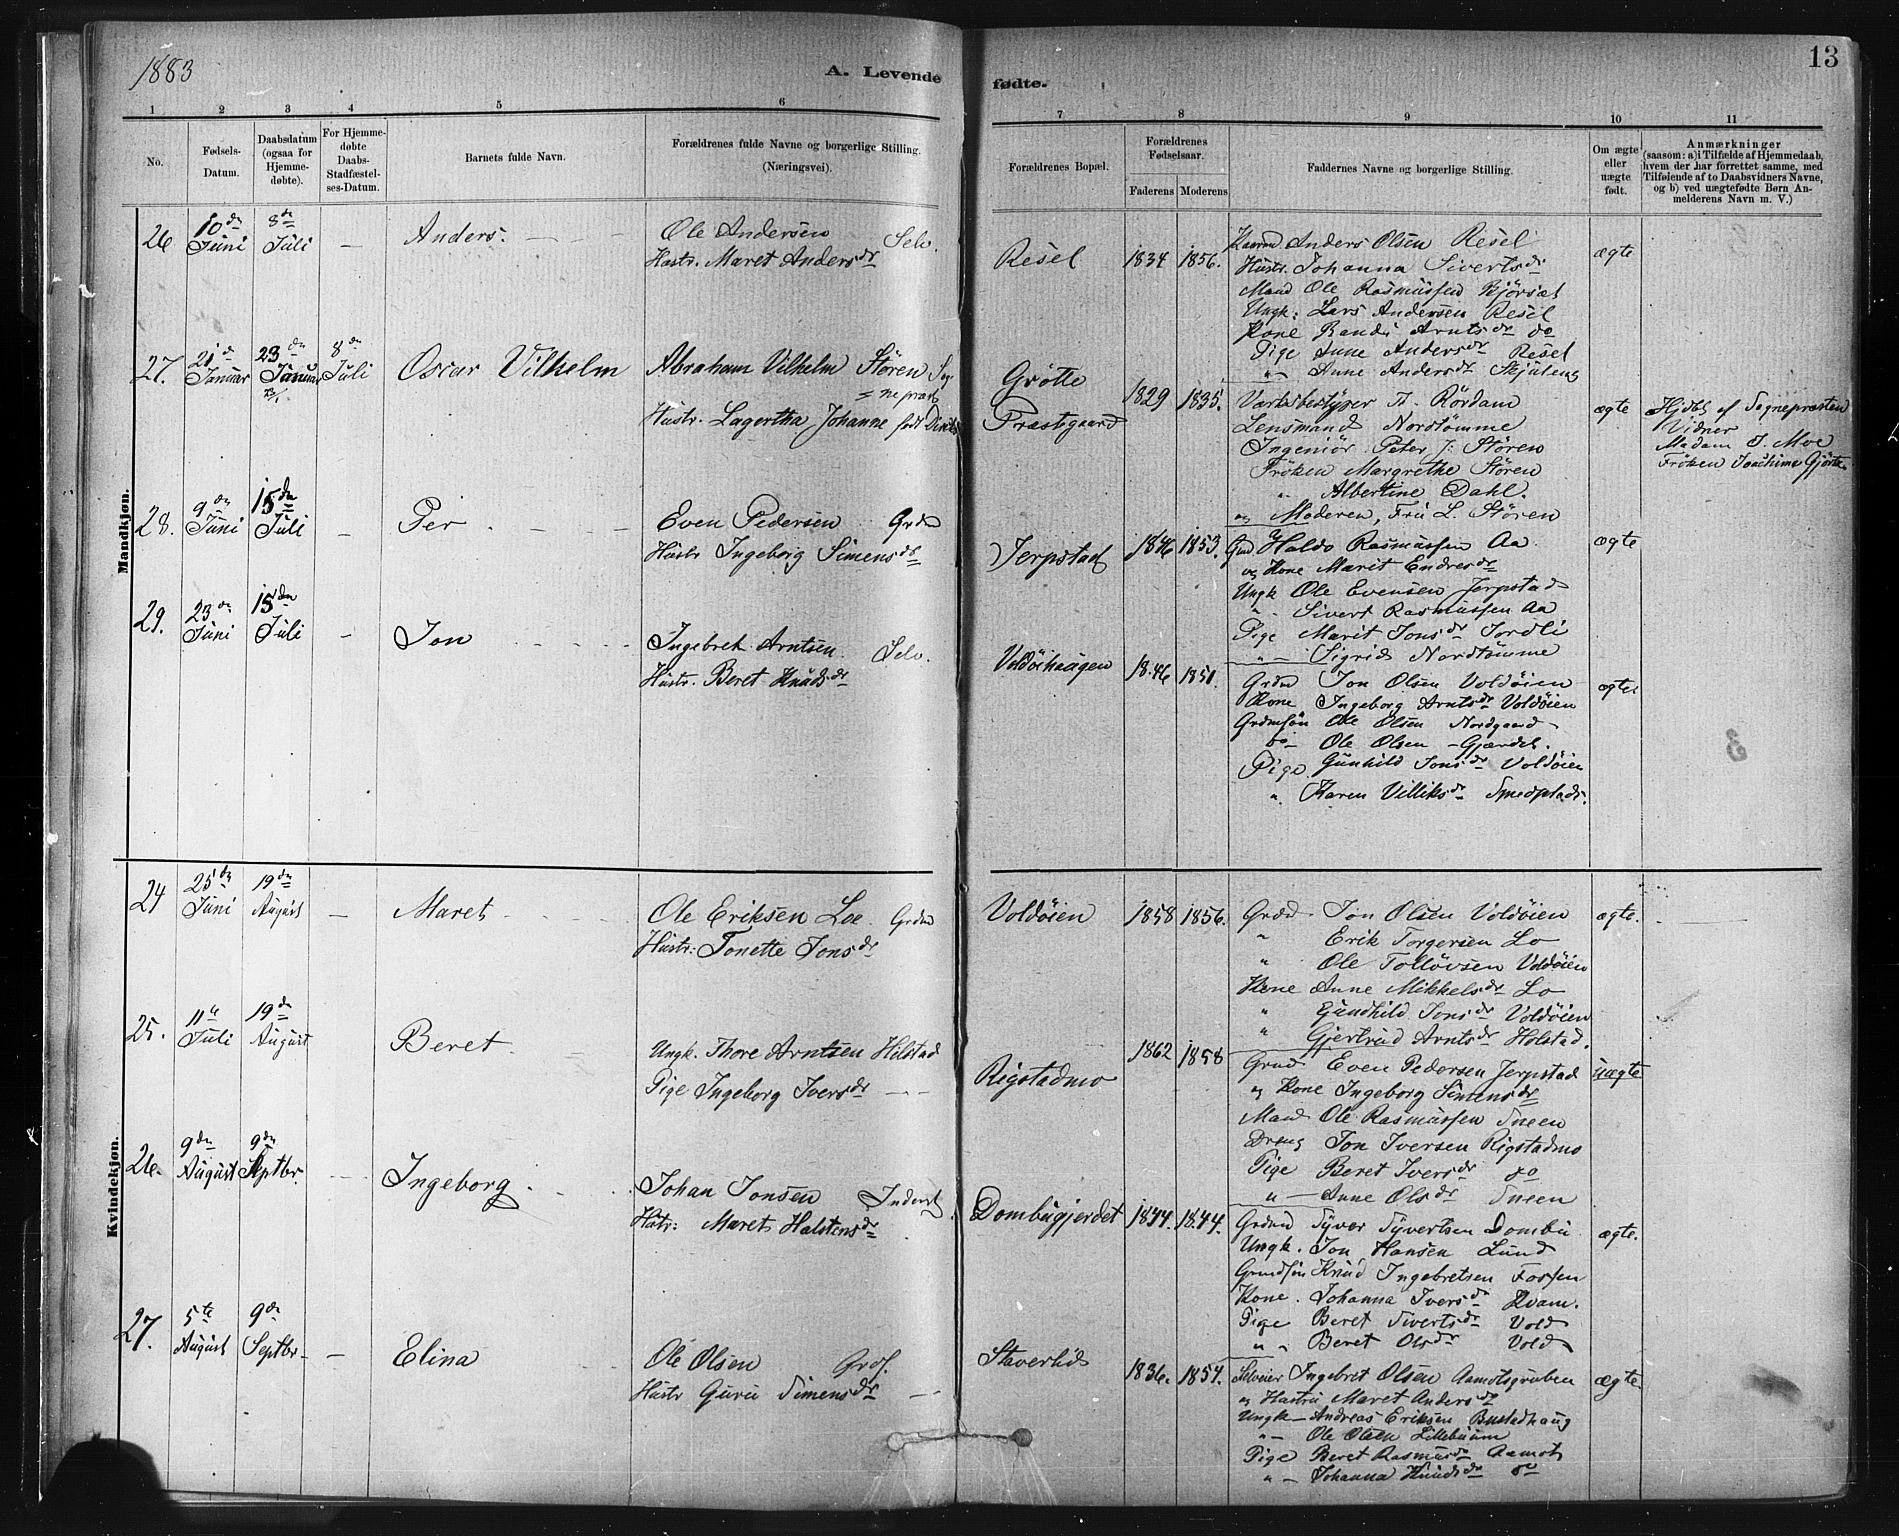 1883
A. Levende fødte.
13
1 2 3 4 5 6 7 8 9 10 11
No.
Fødsels-Datum.
Daabsdatum (ogsaa for Hjemmedøbte).
For Hjemmedøbte Daabs-Stadfæstelses-Datum.
Barnets fulde Navn.
Forældrenes fulde Navne og borgerlige Stilling. (Næringsvei).
Forældrenes Bopæl.
Forældrenes Fødselsaar.
Faderens Moderens
Faddernes Navne og borgerlige Stilling.
Om ægte eller uægte født.
Anmærkninger
(saasom: a) i Tilfælde af Hjemmedaab, hvem der har forrettet samme, med Tilføiende af to Daabsvidners Navne, og b) ved uægtefødte Børn Anmelderens Navn m. V.)
Mandkjøn.
26 10de Juni 8de Juli — Anders.
Ole Andersen Selv.
Hustr. Maret Andersdr
Resel 1834 1856.
Anders Olsen Resel
Hustr. Johanna Sivertsdr
Mand Ole Rasmussen
Ungk: Lars Andersen Resel
Kone Randi Arntsdr do
Pige Anne Andersdr Resel
" — Anne Andersdr
ægte
27. 21de Januar 23de Januar 8de Juli Oscar Vilhelm
Abraham Vilhelm Støren Sognepræst
Hustr. Lagertha Johanne født
Grøtte Præstegaard 1829 1835.
Værksbestyrer Th. Rørdam
Lensmand Nordtømme
Ingeniør Peter J. Støren
Frøken Margrethe Støren
" Albertine Dahl.
og Moderen, Fru L. Støren
ægte
Hjdbt af Sognepræsten
Vidner
Madam J. Moe
Frøken Joachime
28. 9de Juni 15de Juli — Per
Even Pedersen Grd
Hustr Ingeborg Simensdr
Jerpstad 1846 1853.
Grd Haldo Rasmussen Aa
og Kone Marit Endresdr
Ungk Ole Evensen Jerpstad
" — Sivert Rasmussen Aa
Pige Marit Jonsdr Jordli
" — Sigrid Nordtømme
ægte
29. 23de Juni 15de Juli — Jon
Ingebret Arntsen. Selv.
Hustr. Beret Knudsdr
Voldøihaugen 1846 1851.
Grdm Jon Olsen Voldøien
Kone Ingeborg Arntsdr Voldøien
Grdmsøn Ole Olsen Nordgaard
do — Ole Olsen — Gjærdet.
Pige Gunhild Jonsdr Voldøien
" Karen Villiksdr
ægte
Kvindekjøn.
24 25de Juni 19de August — Maret
Ole Eriksen Loe. Grdm
Hustr: Tonette Jonsdr
Voldøien 1858 1856.
Grdd Jon Olsen Voldøien
" Erik Torgersen Lo
" Ole Tolløvsen Voldøien
Kone Anne Mikkelsdr Lo
" Gundhild Jonsdr Voldøien
" Gjertrud Arntsdr Holstad.
ægte.
25. 11te Juli 19de August Beret
Ungk. Thore Arntsen Hilstad
Pige Ingeborg Iversdr
Rigstadmo 1862 1858
Grmd Even Pedersen Jerpstad
og Kone Ingeborg Simensdr
Mand Ole Rasmussen Sneen
Dreng Jon Iversen Rigstadmo
Pige Beret Iversdr do
" — Anne Olsdr Sneen
uægte
26. 9de August 9de Septbr. — Ingeborg
Johan Jonsen Inderst
Hustr: Maret Halstensdr
Dombugjerdet 1844. 1844.
Grdmd Syver Syvertsen Dombu
Ungk. Jon Hansen Lund
Grmdsøn Knud Ingebretsen Fossen
Kone. Johanna Iversdr Kvam.
Pige Beret Sivertsdr Vold
" Beret Olsdr Vold
ægte.
27. 5te August 9de Septbr — Elina
Ole Olsen
Hustr Guru Simensdr
Staverlid 1836. 1854.
Selveier Ingebret Olsen Aamotsgruben
og Hustru Maret Andersdr
Ungk — Andreas Eriksen Bustadhaug
" — Ole Olsen Lillebuum
Pige Beret Rasmusdr Aamot
" — Johanna Knudsdr do
ægte